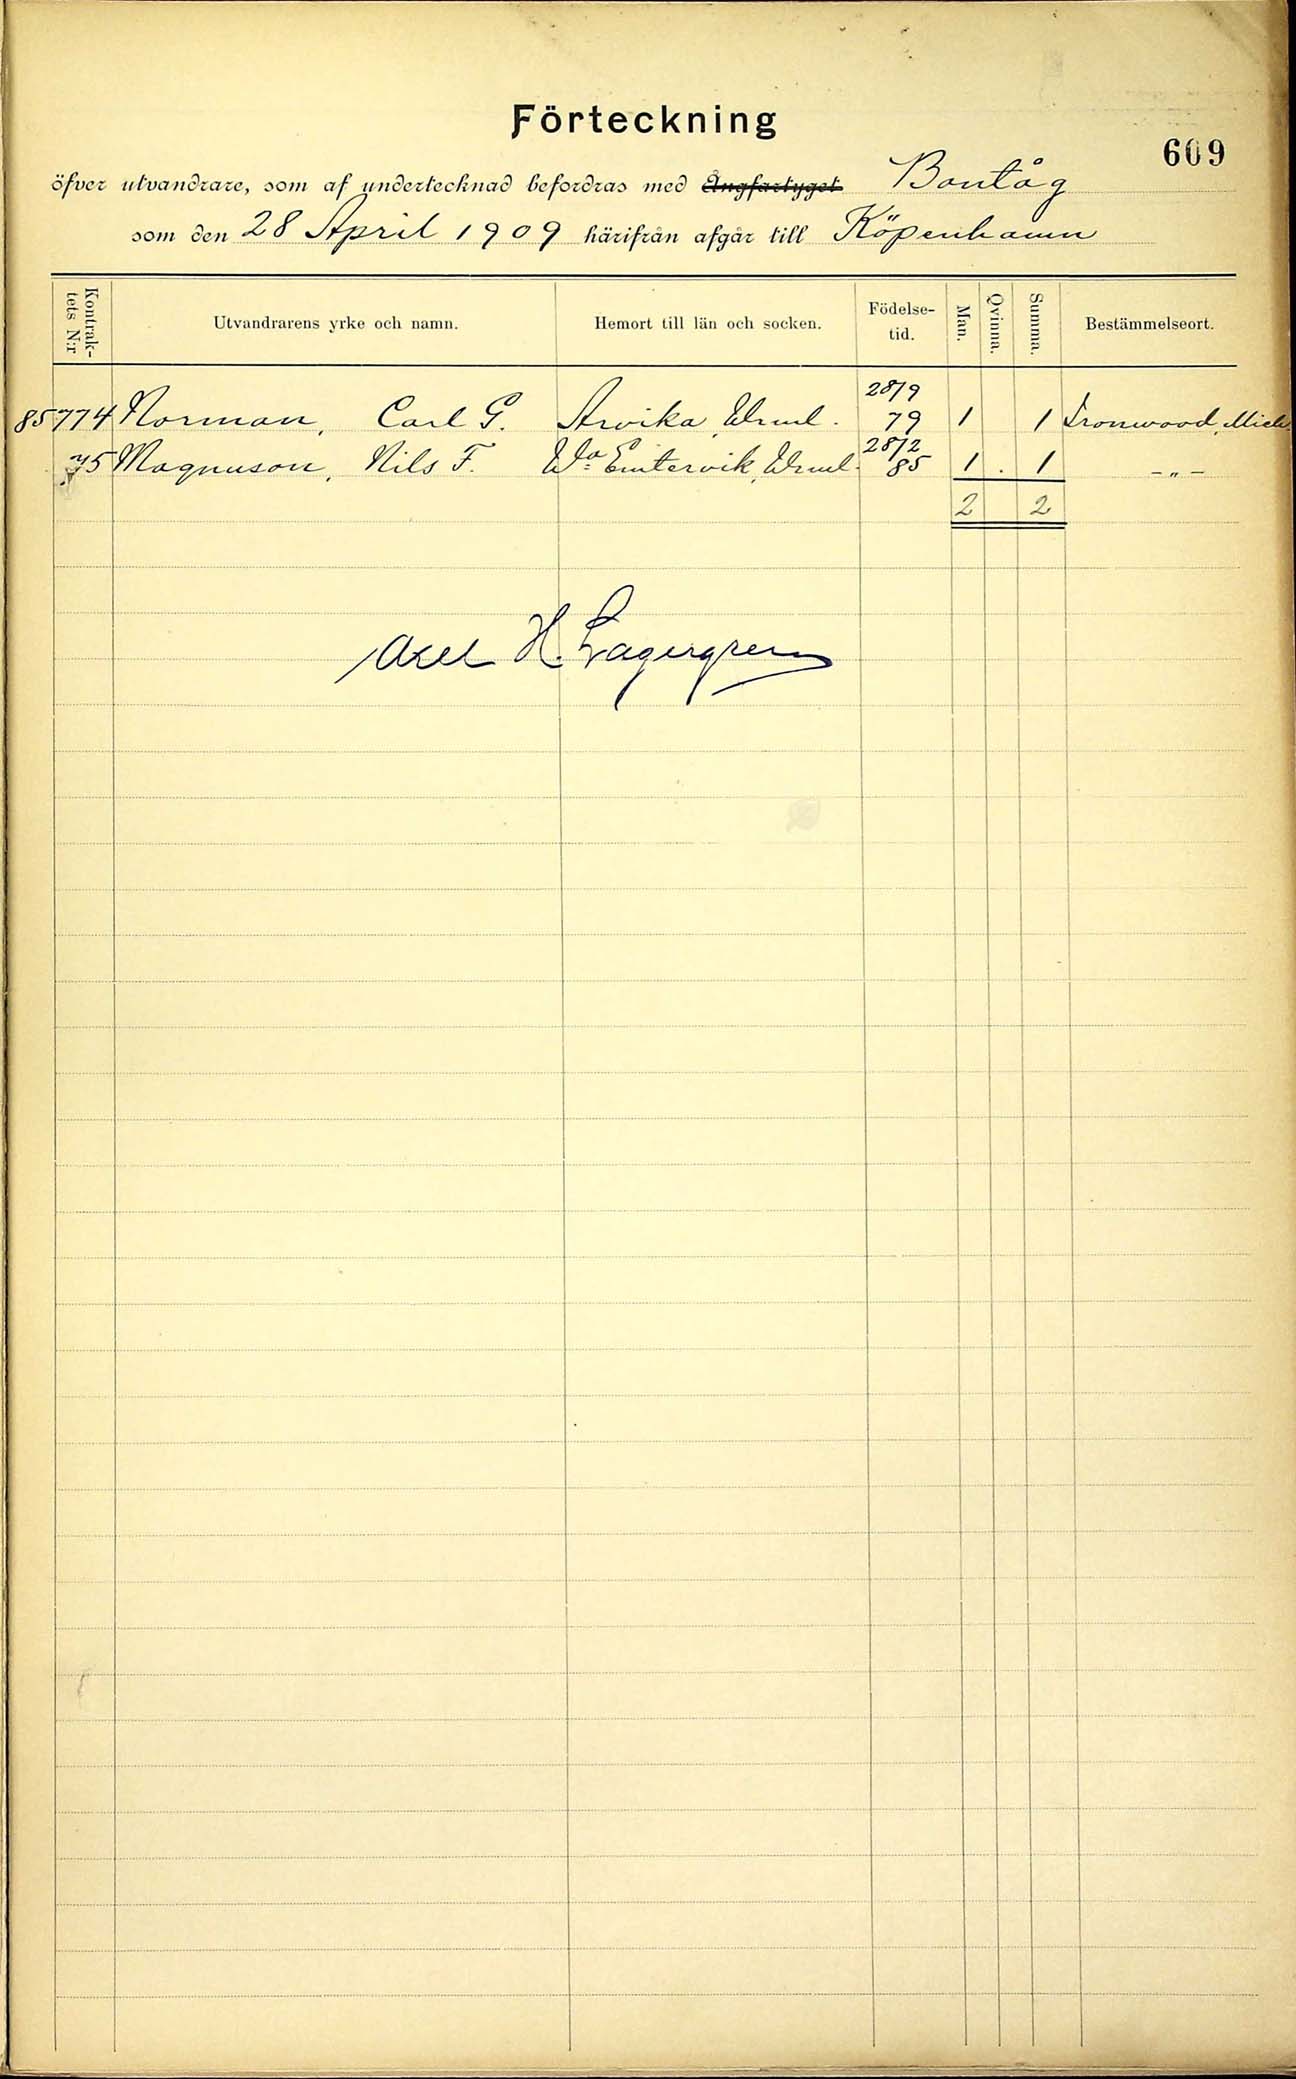 Förteckning
609
öfver utvandrare, som af undertecknad befordras med Ångfartyget Bantåg
som den 28 April 1909 härifrån afgår till Köpenhamn
Kontraktets N:r Utvandrarens yrke och namn. Hemort till län och socken. Födelsetid. Man. Qvinna. Summa. Bestämmelseort.
85774 Norman, Carl G. Arvika, Wrml. 28/9 79 1 1 Ironwood, Mich.
75 Magnuson, Nils F. Wa Emtervik, Wrml. 28/2 85 1 1 - " -
2 2
Axel H. Lagergren